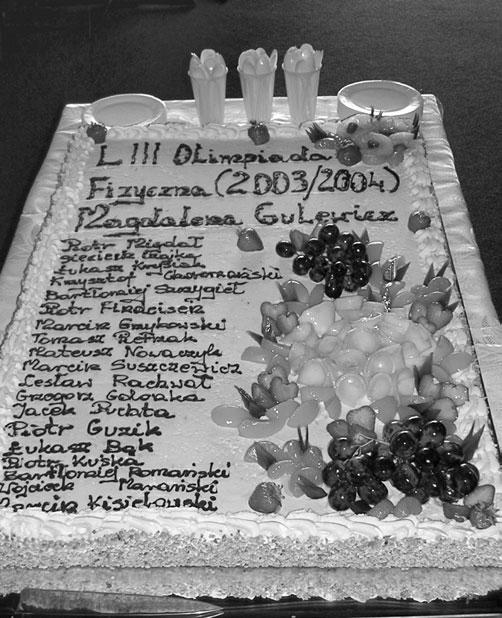 LIII Olimpiada
Fizyczna (2003/2004)
Magdalena Gulewicz
Piotr Migdał
Łukasz
Krzysztof
Bartłomiej Szczygieł
Piotr
Marcin Gmykowski
Tomasz Pietrzak
Mateusz Nowaczyk
Marcin Suszczewicz
Lesław Rachwał
Grzegorz Golonka
Jacek Puchta
Piotr Guzik
Łukasz Bąk
Piotr Kuśka
Bartłomiej Romański
Wojciech Marański
Marcin Kisielowski